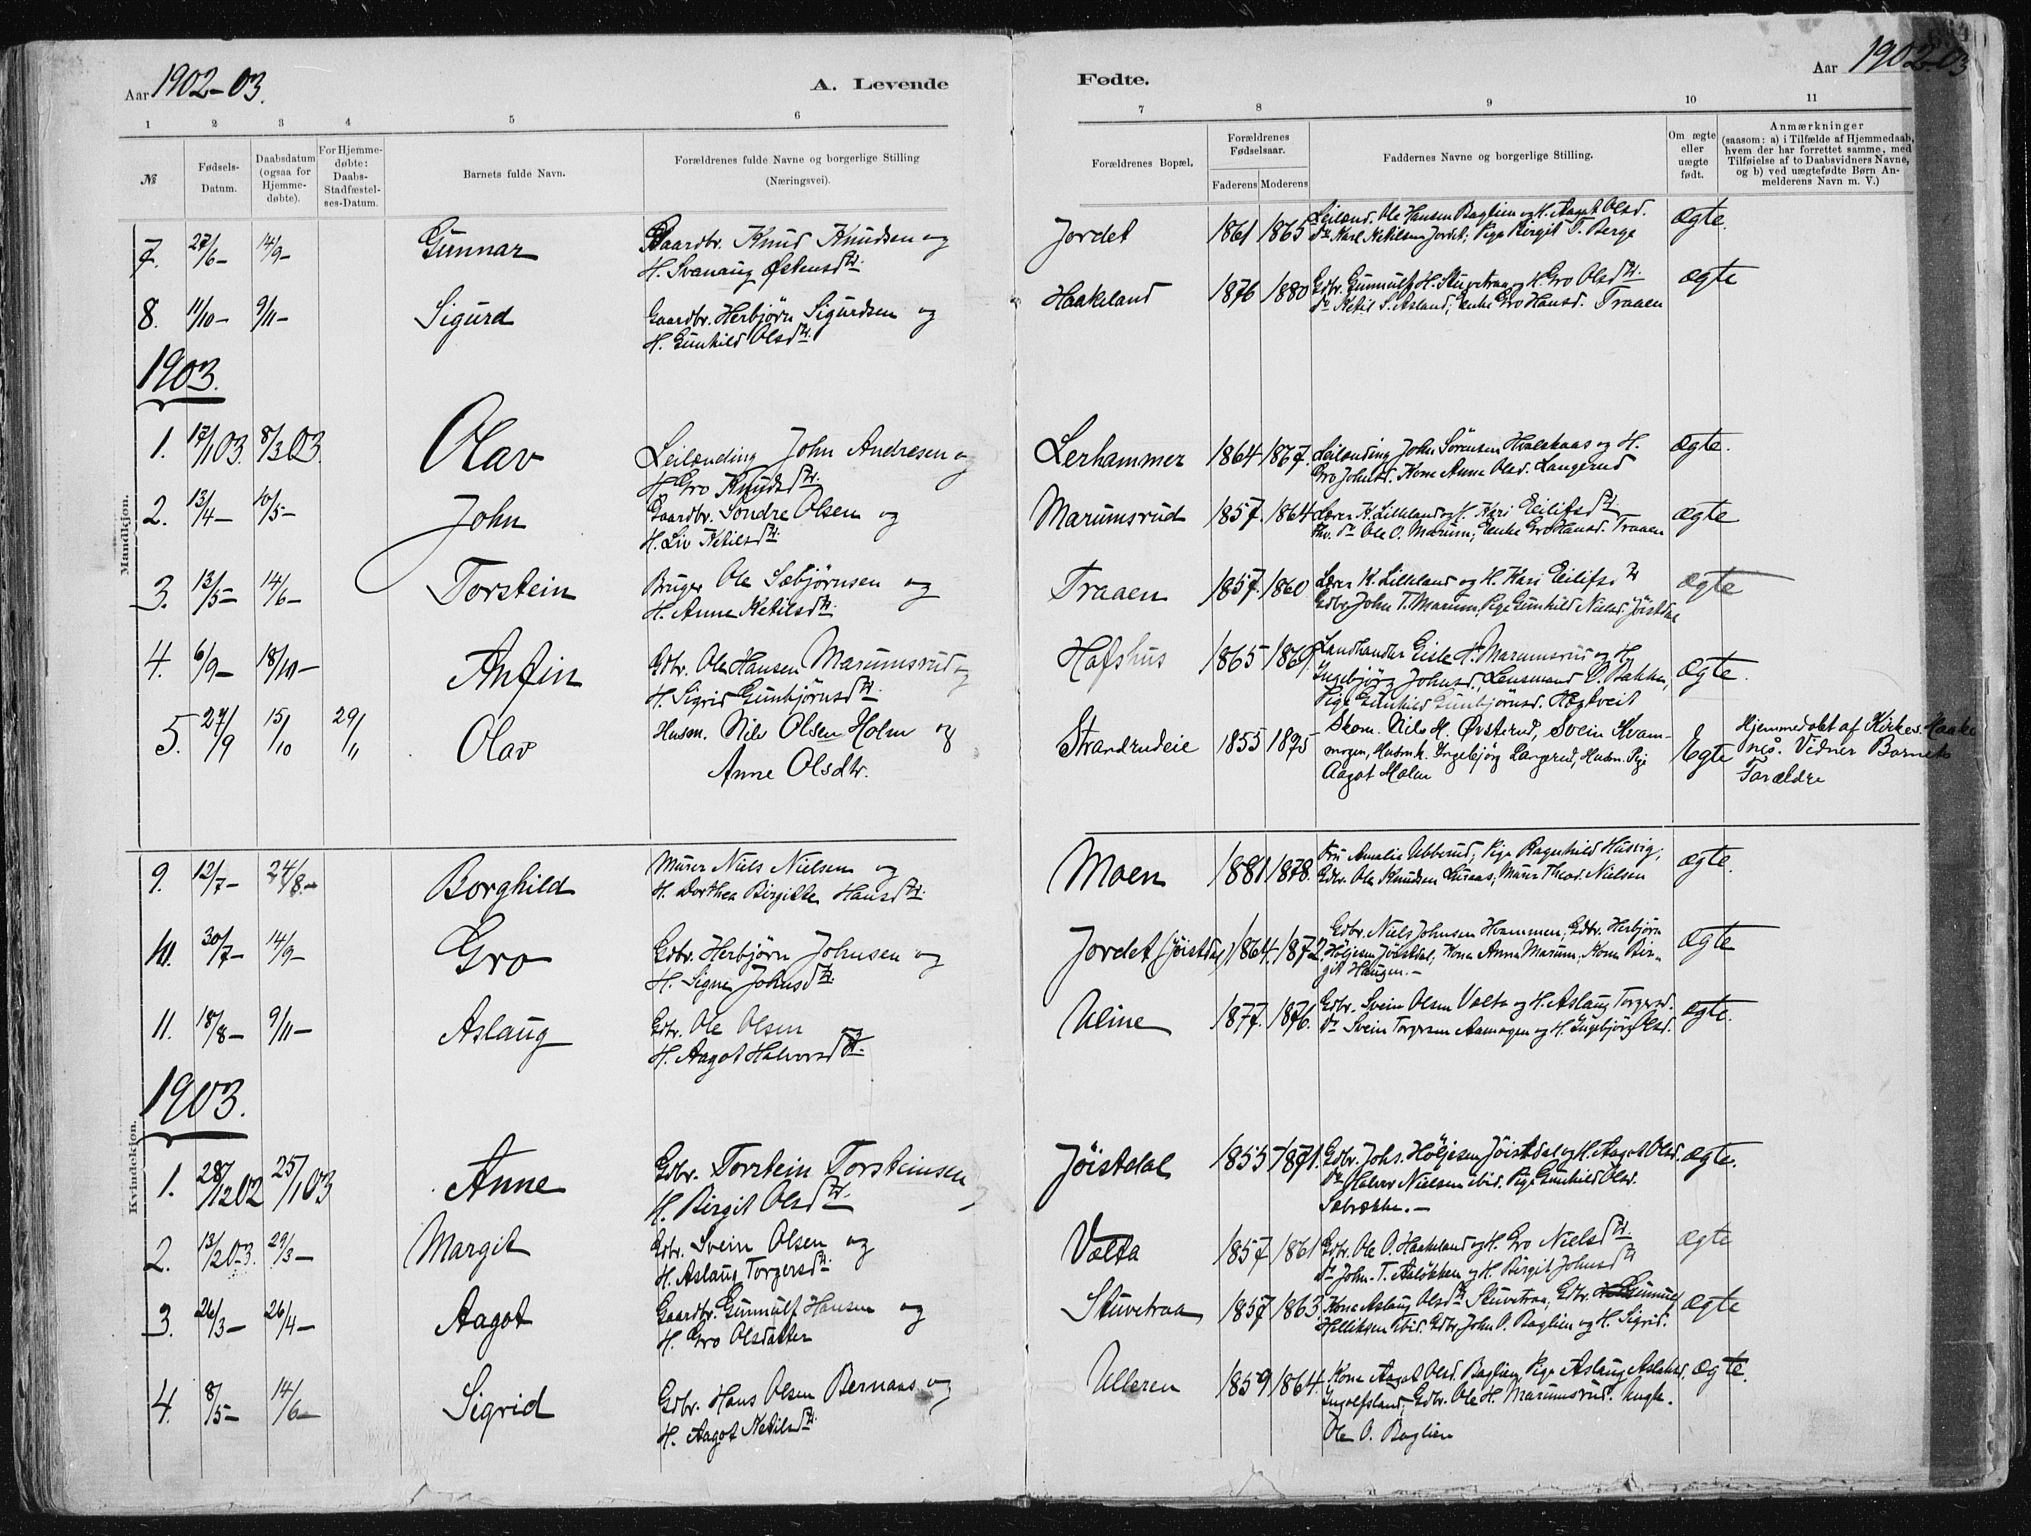 Aar 1902-03. A. Levende Fødte. Aar 1902-03
1 2 3 4 5 6 7 8 9 10 11
№
Fødsels-Datum.
Daabsdatum (ogsaa for Hjemmedøbte).
For Hjemmedøbte: Daabs-Stadfæstelses-Datum.
Barnets fulde Navn.
Forældrenes fulde Navne og borgerlige Stilling
(Næringsvei).
Forældrenes Bopæl.
Forældrenes Fødselsaar.
Faderens Moderens
Faddernes Navne og borgerlige Stilling.
Om ægte eller uægte født.
Anmærkninger
(saasom: a) i Tilfælde af Hjemmedaab, hvem der har forrettet samme, med Tilføielse af to Daabsvidners Navne, og b) ved uægtefødte Børn Anmelderens Navn m. V.)
Mandkjøn.
7. 27/6- 14/9- Gunnar Gaardbr. Knud Knudsen og
H. Svanaug Østensdtr.
Jordet 1861 1865 Leilænd. Ole Hansen Baglien og H. Aagot Olsd.
Do Karl Ketilsen Jordet; Pige Birgit T. Berge
ægte.
8. 11/10- 9/11- Sigurd Gaardbr. Herbjørn Sigurdsen og
H. Gunhild Olsdtr.
Haakeland 1876 1880 Gdbr. Gunnulf H. Stuvetraa og H. Gro Olsdtr.
Do Ketil S. Asland; Enke Gro Hansd. Traaen
ægte
1903.
1. 17/1 03. 8/3 03. Olav Leilænding John Andresen og
H. Gro Knudsdtr.
Lerhammer 1864 1867. Leilænding John Sørensen Hvalskaas og H.
Gro Johnsd. Kone Anne Olsd. Langerud
ægte.
2. 13/4- 10/5- John Gaardbr. Søndre Olsen og
H. Liv Ketilsdtr.
Marumsrud 1857. 1864 Lærer K. Lilleland og H. Kari Eilifsdtr.
Do Ole O. Marum; Enke Gro Hansd. Traaen
ægte
3. 13/5- 14/6- Torstein Bruger Ole Sæbjørnsen og
H. Anne Ketilsdtr.
Traaen 1857. 1860 Lærer K. Lilleland og H. Kari Eilifsdtr
Gdbr. John T. Marum, Pige Gunhild Nielsd. Jøistdal
ægte
4. 6/9- 18/10- Anfin Gdbr. Ole Hansen Marumsrud og
H. Sigrid Gunbjørnsdtr.
Hafshus 1865 1869 Landhandler Eisle H. Marumsrud og H.
Ingebjørg Johnsd., Lensmand O. Bakken,
Pige Gunhild Gunbjørnsd. Høgkveit
ægte.
5. 27/9 15/10 29/11 Olav Husm. Nils Olsen Holm og
Anne Olsdtr.
Strandrudeie 1855 1895 Skom. Nils H. Øvsterud, Svein Kvam-
mogen, Husmk. Ingebjørg Langerud, Husm. Pige
Aagot Holm
Egte Hjemmedøbt af Kirkes. Haake
nes. Vidner Barnets
Forældre
Kvindekjøn.
9. 12/7- 24/8- Borghild Murer Niels Nielsen og
H. Dorthea Birgitte Hansdtr.
Moen 1881 1878. Fru Amalie Ubberud; Pige Ragnhild Husvig;
Gdbr. Ole Knudsen Luraas; Murer Theod. Nielsen
ægte.
10. 30/7- 14/9- Gro Gdbr. Herbjørn Johnsen og
H. Signe Johnsdtr.
Jordet (Jøistdal) 1864. 1872. Gdbr. Niels Johnsen Hvammen; Gdbr. Herbjørn
Høljesen Jøistdal; Kone Anna Marum; Kone Bir-
git Haugen.-
ægte
11. 18/8- 9/11- Aslaug Gdbr. Ole Olsen og
H. Aagot Halvorsdtr.
Uline 1877. 1876. Gdbr. Svein Olsen Valta og H. Aslaug Torgersd.
Do Svein Torgersen Aamogen og H. Ingebjørg Olsd.
ægte.
1903.
1. 28/12 02 25/1 03 Anne Gdbr. Torstein Torsteinsen
H. Birgit Olsdtr.
Jøistdal 1855 1871. Gdbr. Johs. Høljesen Jøistdal og H. Aagot Olsd.
Do Halvor Nielsen ibid. Pige Gunhild Olsd.
Sabrekke.-
ægte.
2. 13/12 03. 29/3- Margit Gdbr. Svein Olsen og
H. Aslaug Torgersdtr.
Valta 1857 1861 Gdbr. Ole O. Haakeland og H. Gro Nielsdtr
Do John. T. Asløkken og H. Birgit Johnsdtr
ægte
3. 26/3- 26/4- Aagot Gaardbr. Gunnulf Hansen og
H. Gro Olsdatter
Stuvetraa 1857 1863. Kone Aslaug Olsdtr Stuvetraa; Gdbr. Gunnulf
Helliksen ibid. Gdbr. John O. Baglien og H. Sigrid.
ægte
4. 8/5- 14/6- Sigrid Gdbr. Hans Olsen Bernaas og
H. Aagot Ketilsdtr.
Ulleren 1859 1864. Kone Aagot Olsd. Baglien, Pige Aslaug Aslaksd.
Ingolfsland; Gdbr. Ole H. Marumsrud. Ungk.
Ole O. Baglien
ægte.